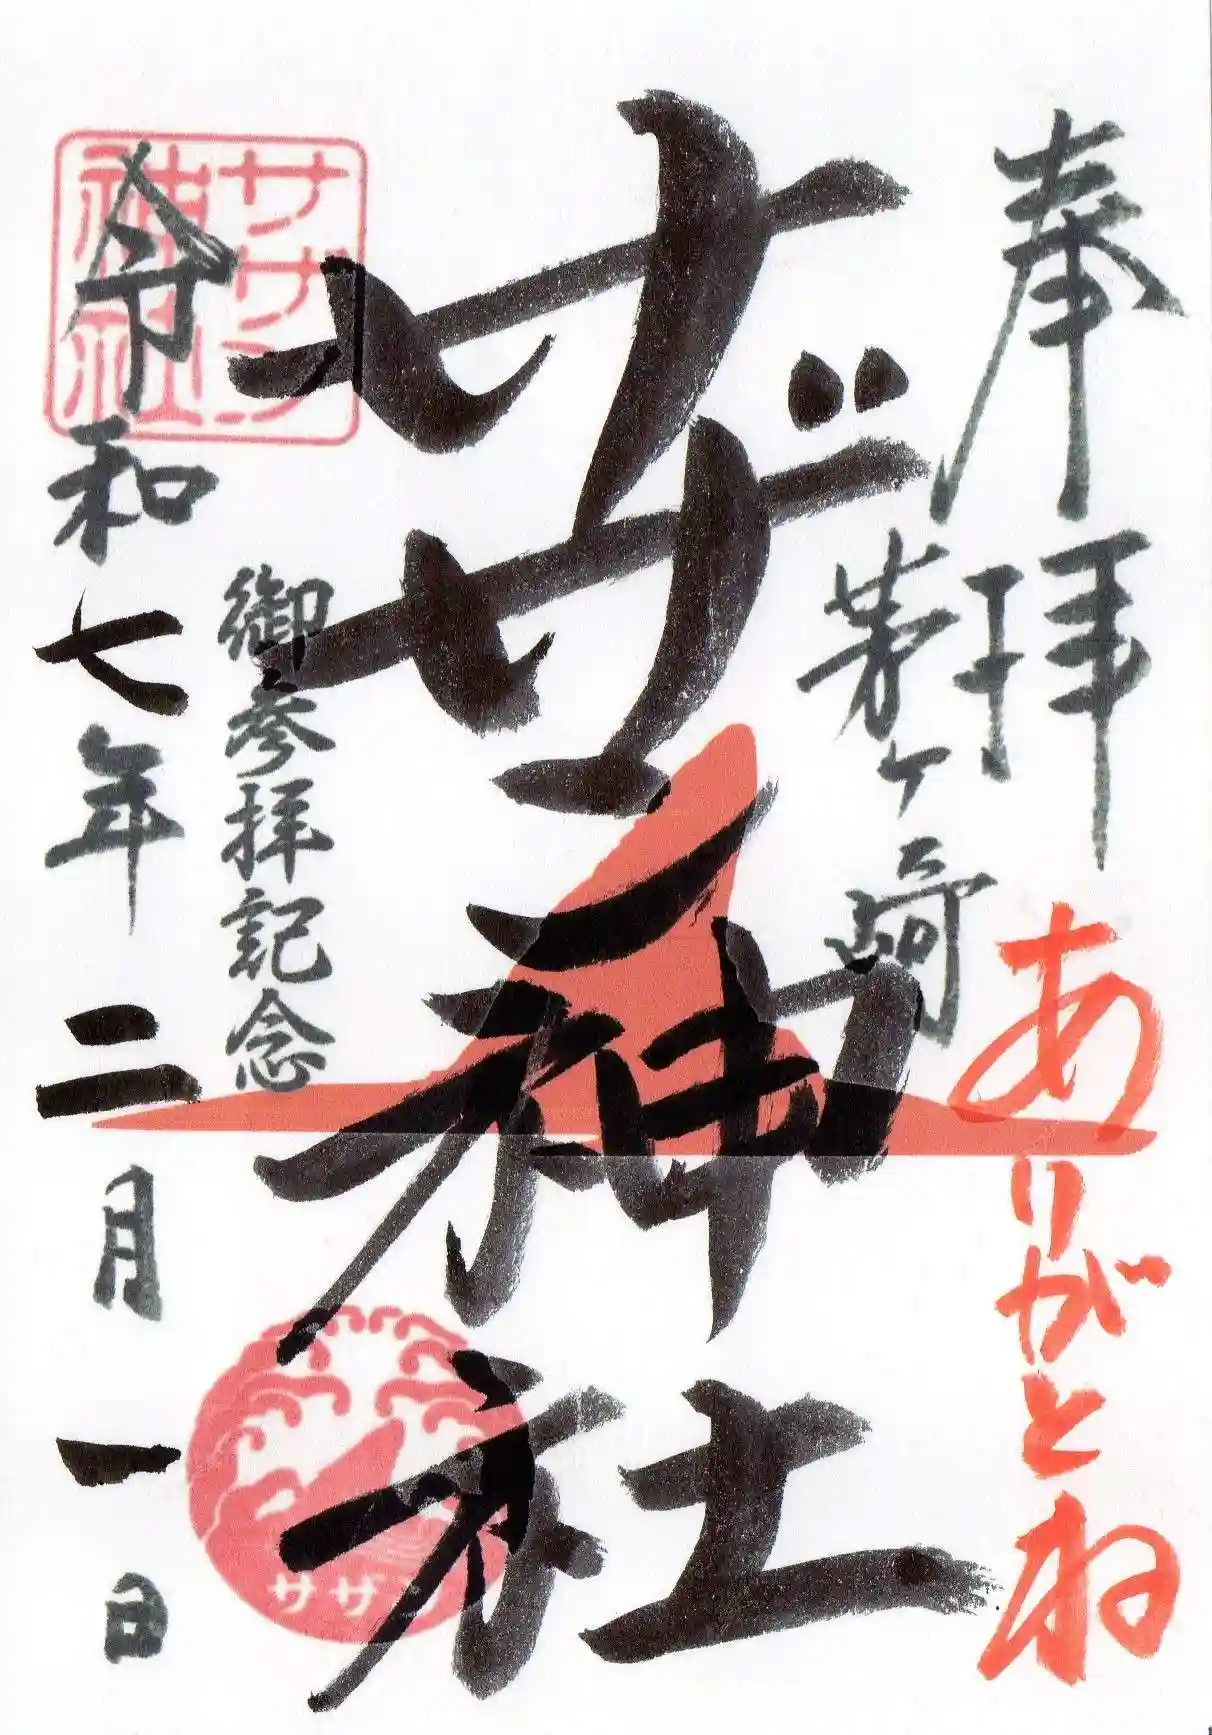 奉拝
ありがとね
茅ヶ崎
サザン神社
御参拝記念
令和七年二月一日
サザン
神社
サザ